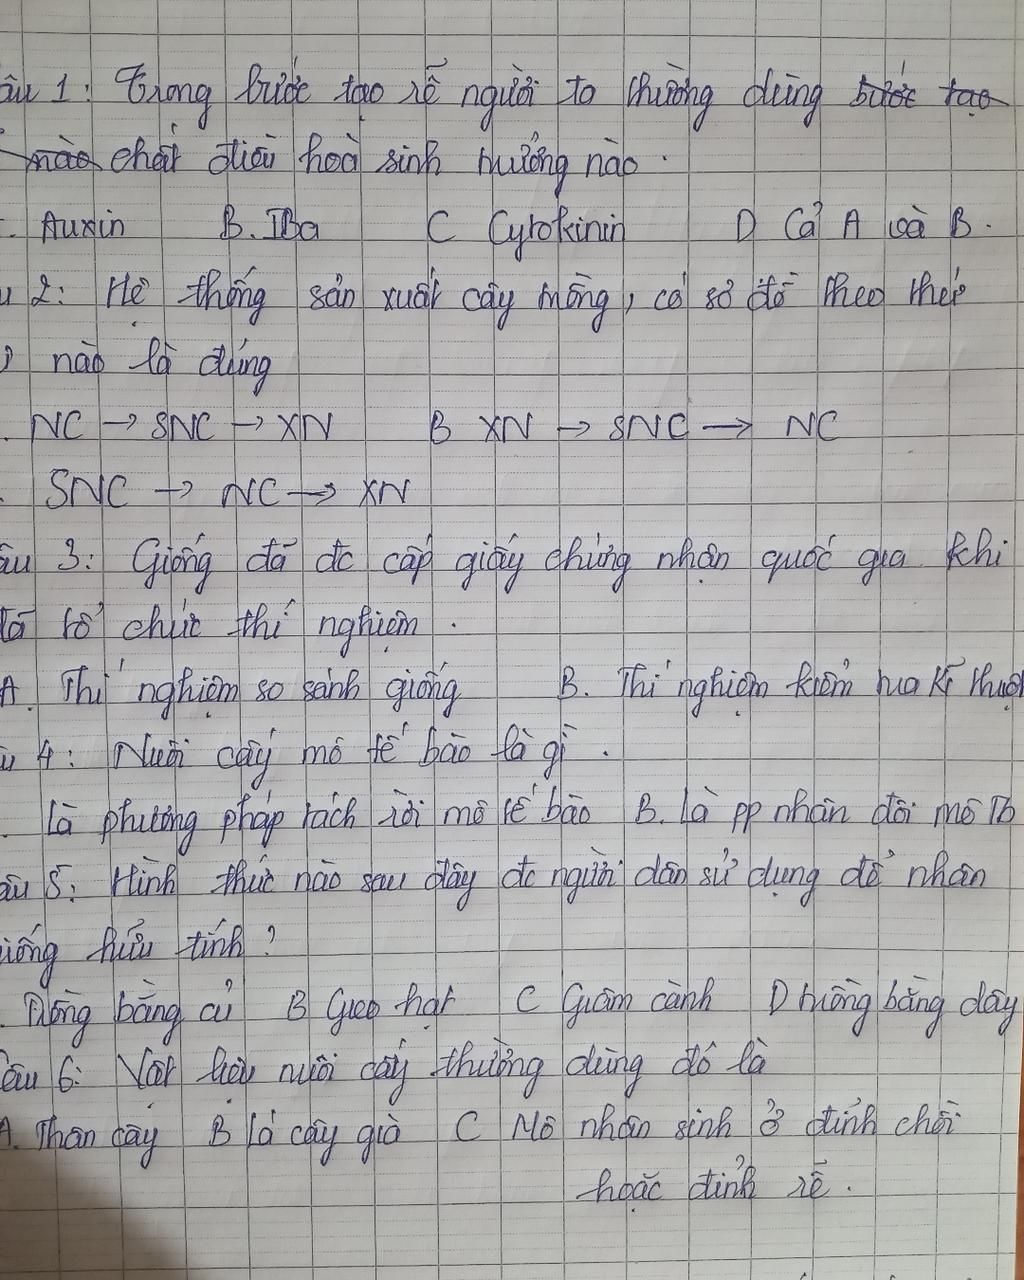 âu 1: Trong bước tạo rễ người ta thường dùng bước tạo
nào chất điều hoà sinh trưởng nào.
. Auxin B. IBa C Cytokinin D Cả A và B.
u 2: Hệ thống sản xuất cây trồng, có sơ đồ theo thứ
nào là đúng
. NC → SNC → XN B XN → SNC → NC
. SNC → NC → XN
âu 3: Giống đã đc cấp giấy chứng nhận quốc gia khi
đã tổ chức thí nghiệm.
A. Thí nghiệm so sánh giống B. Thí nghiệm kiểm tra kĩ thuật
u 4: Nuôi cấy mô tế bào là gì.
. là phương pháp tách rời mô tế bào B. là pp nhân đôi mô Tb
âu 5: Hình thức nào sau đây đc người dân sử dụng để nhân
iống hữu tính?
. Trồng bằng củ B Gieo hạt C Giâm cành D trồng bằng dây
âu 6: Vật liệu nuôi cấy thường dùng đó là
A. Thân cây B lá cây già C Mô phân sinh ở đỉnh chồi
hoặc đỉnh rễ.